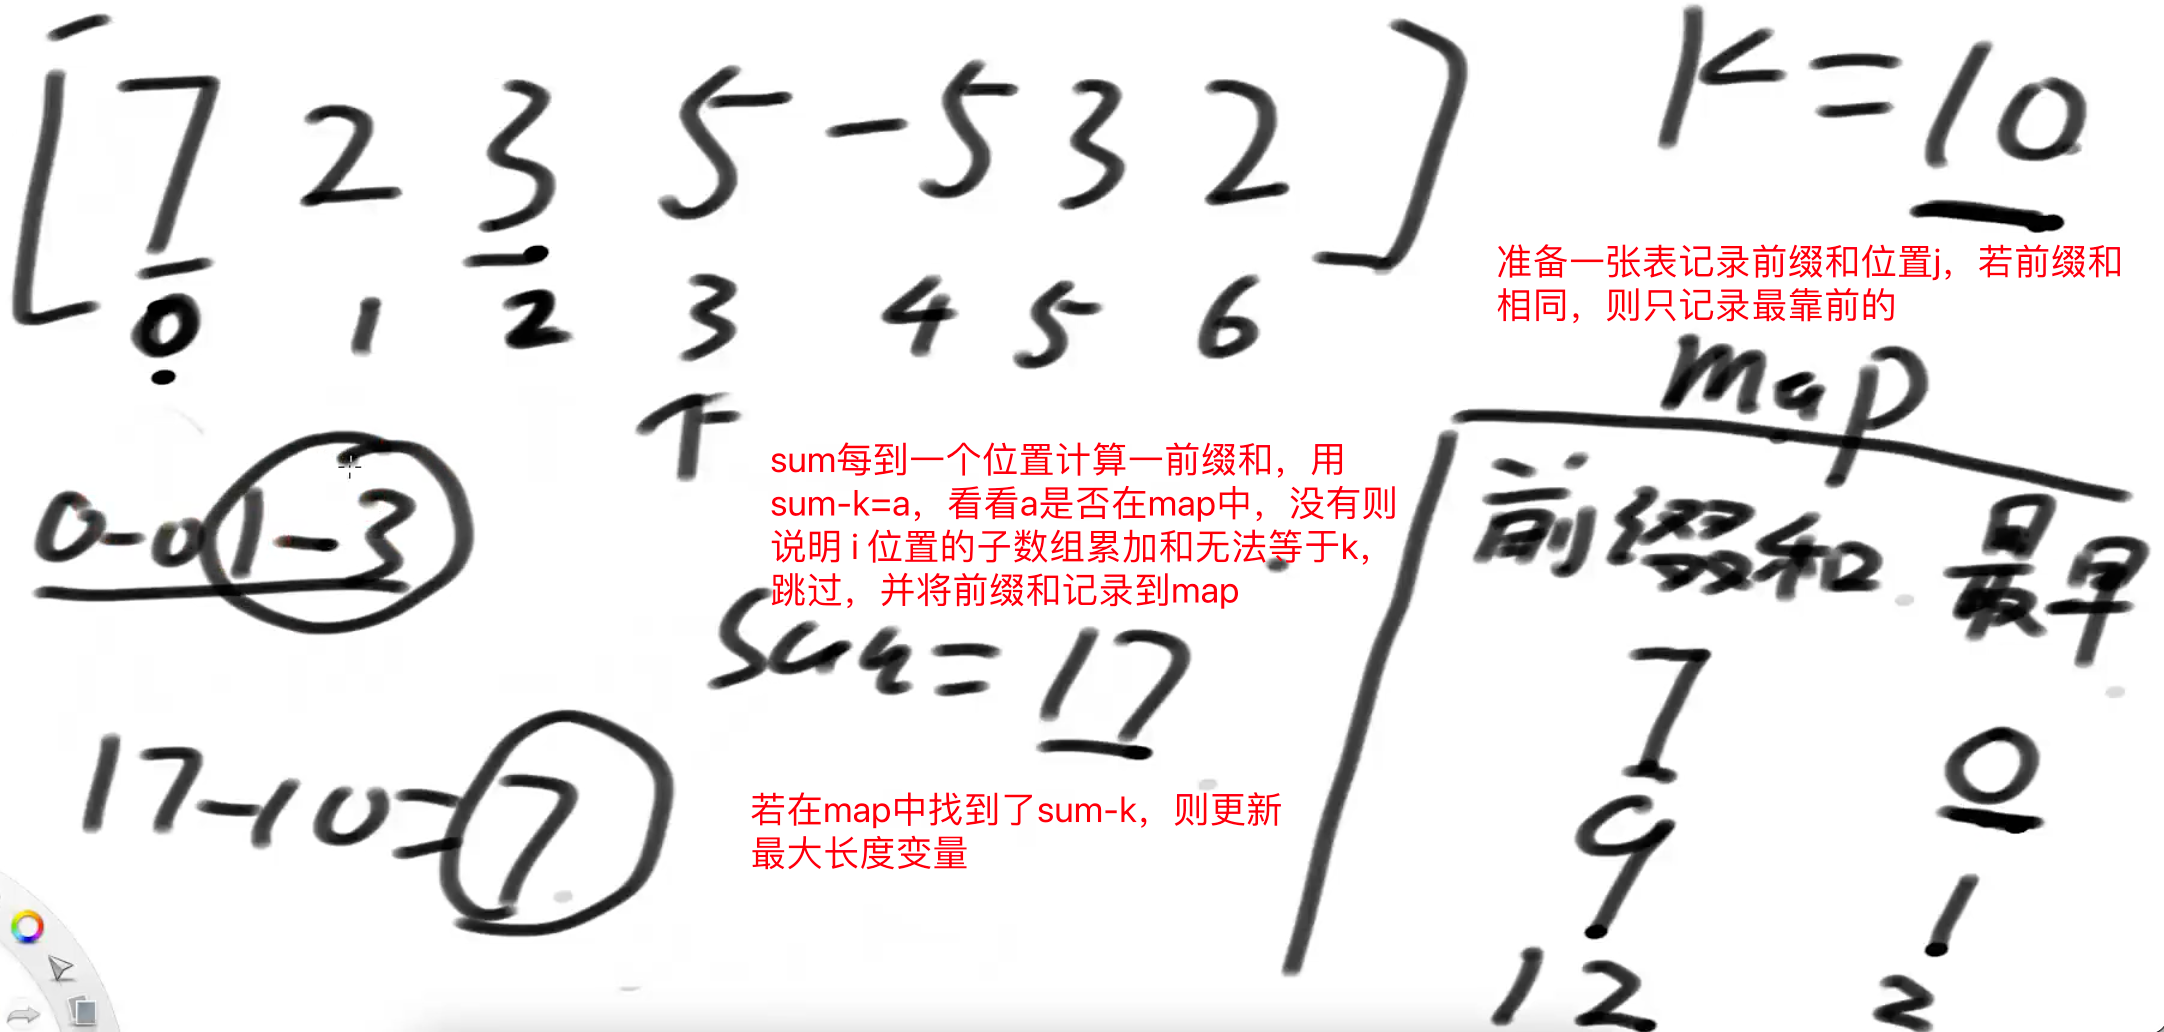 [7 2 3 5 -5 3 2] K=10
0 1 2 3 4 5 6
准备一张表记录前缀和位置j，若前缀和
相同，则只记录最靠前的
map
sum每到一个位置计算一前缀和，用
sum-k=a，看看a是否在map中，没有则
说明 i 位置的子数组累加和无法等于k，
跳过，并将前缀和记录到map
0-0 1-3
前缀和 最早
Sum=17
7 0
17-10=7
若在map中找到了sum-k，则更新
最大长度变量
9 1
12 2